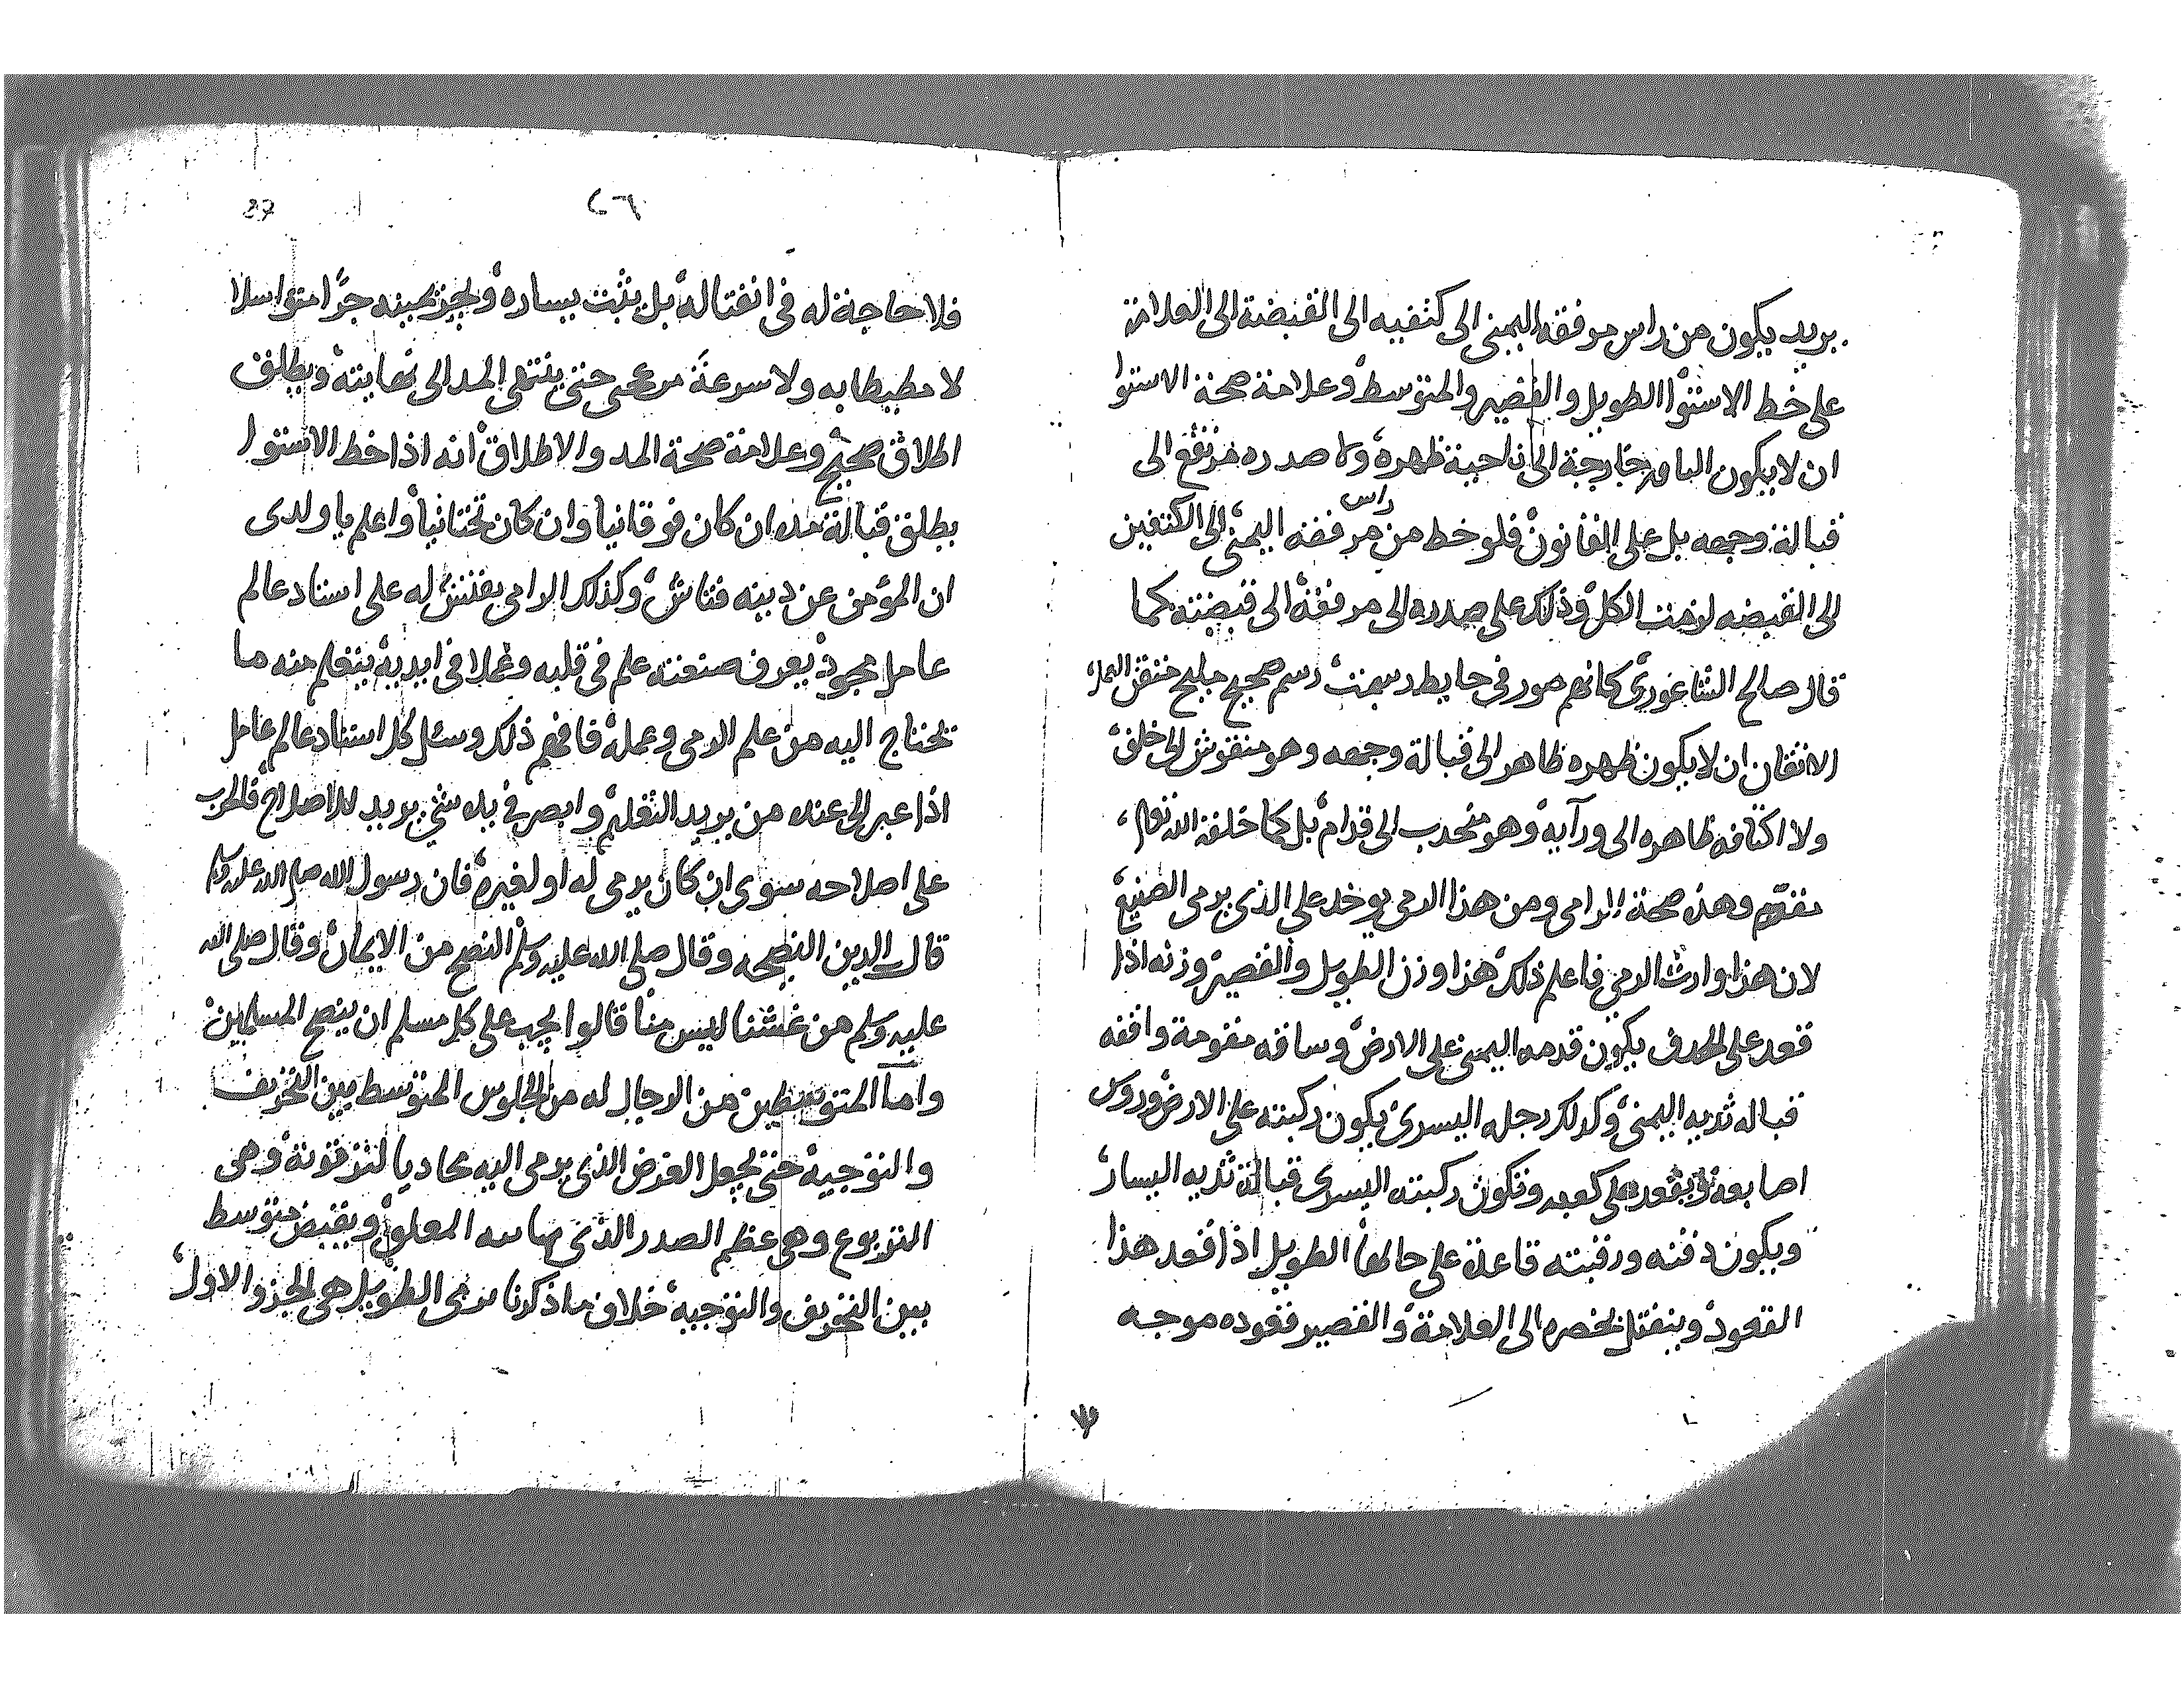 يريد يكون من راس مرفقه اليمنى الى كتفيه الى القبضة الى العلامة
على خط الاستوا الطويل والقصير والمتوسط وعلامة صحة الاستوا
ان لا يكون خارجة الى ناحية ظهره ولا صدره مرتفع الى
قبالة وجهه بل على القانون فلو خط من مرفقه اليمنى الى الكتفين
راس
الى القبضه لزمت الكل وذلك على صدره الى مرفقة الى قبضته كما
قال صالح الشاغورى كانهم صور فى حايط رسمت رسم صحيح مليح متقن العمل
الاتقان ان لا يكون ظهره ظاهر الى قبالة وجهه وهو منقوش الى خلف
ولا اكتافه ظاهره الى ورآيه وهو منحدب الى قدام بل كما خلقه الله تعالى
مقوم وهذه صحة الرامى ومن هذا الرمى يوخد على الذى يرمى الصنيع
لان هذا وارث الرمى فاعلم ذلك هذا وزن الطويل والقصير وزنه اذا
قعد على الهدف يكون قدمه اليمنى على الارض وساقه مقومة واقفه
قباله ثديه اليمنى وكدلك رجله اليسرى يكون ركبته على الارض وروس
اصابعه ويقعد على كعبه وتكون ركبته اليسرى قبالة ثديه اليسار
ويكون دقنه ورقبته قاعدة على حالها الطويل اذا قعد هذا
القعود وينفتل بخصره الى العلامة والقصير فقعوده موجه
٢٦
27
فلا حاجة له فى انفتاله بل يثبت بيساره ويجر بيمينه جرا متواسلا
لا مطيطا به ولا سرعة حتى ينتهى المد الى نهايته ويطلق
اطلاق صحيح وعلامة صحة المد والاطلاق انه اذا خط الاستوا
يطلق قبالة مده ان كان فوقانيا وان كان تحتانيا واعلم يا ولدى
ان المؤمن عن دينه فتاش وكذلك الرامى يفتش له على استاد عالم
عامل مجود يعرف صنعته علم فى قلبه وعملا فى ايديه يتعلم منه ما
تحتاج اليه من علم الرمى وعمله فافهم ذلك وسئل كل استاد عالم عامل
اذا عبر الى عنده من يريد التعليم وابصر فى يده شى يريد للاصلاح فالحرب
على اصلاحه سوى ان كان يرمى له او لغيره فان رسول الله صلى الله عليه وسلم
قال الدين النصيحه وقال صلى الله عليه وسلم النصح من الايمان وقال صلى الله
عليه وسلم من غشنا ليس منا قالوا يجب على كل مسلم ان ينصح المسلمين
واما المتوسطين من الرجال له من الجلوس المتوسط بين التحريف
والتوجيه حتى يجعل الغرض الذى يرمى اليه محاديا لترقوته وهى
التربوع وهى عظم الصدر الذى المعلوم ويقبض متوسط
بين التحريف والتوجيه خلاف ما ذكرنا رمى الطويل هى الجزو الاول